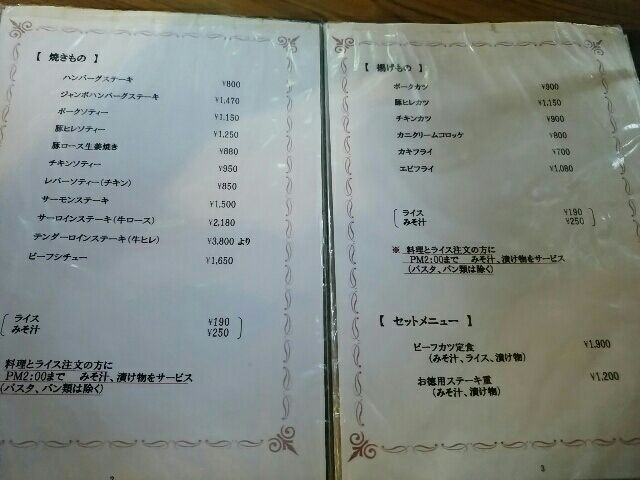 【 焼きもの 】
ハンバーグステーキ ¥800
ジャンボハンバーグステーキ ¥1,470
ポークソティー ¥1,150
豚ヒレソティー ¥1,250
豚ロース生姜焼き ¥880
チキンソティー ¥950
レバーソティー(チキン) ¥850
サーモンステーキ ¥1,500
サーロインステーキ(牛ロース) ¥2,180
テンダーロインステーキ(牛ヒレ) ¥3,800 より
ビーフシチュー ¥1,650
ライス ¥190
みそ汁 ¥250
料理とライス注文の方に
PM2:00まで みそ汁、漬け物をサービス
(パスタ、パン類は除く)
【 揚げもの 】
ポークカツ ¥900
豚ヒレカツ ¥1,150
チキンカツ ¥900
カニクリームコロッケ ¥800
カキフライ ¥700
エビフライ ¥1,080
ライス ¥190
みそ汁 ¥250
※ 料理とライス注文の方に
PM2:00まで みそ汁、漬け物をサービス
(パスタ、パン類は除く)
【 セットメニュー 】
ビーフカツ定食 ¥1,900
(みそ汁、ライス、漬け物)
お徳用ステーキ重 ¥1,200
(みそ汁、漬け物)
3